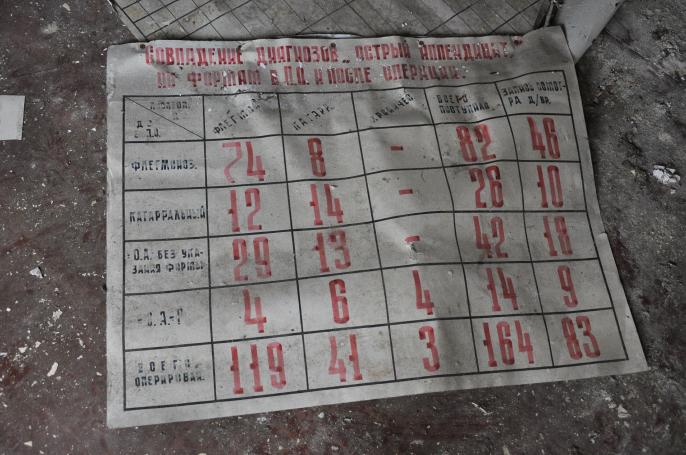 "СОВПАДЕНИЕ ДИАГНОЗОВ „ОСТРЫЙ АППЕНДИЦИТ"
ПО ФОРМАМ В П.О. И ПОСЛЕ ОПЕРАЦИИ.
ФЛЕГМОНА КАТАР. ВСЕГО ПОСТУПИЛО ЗАПИСЬ ОСМОТРА Д/ВР.
Д-З П.О.
ФЛЕГМОНОЗ. 74 8 - 82 46
КАТАРРАЛЬНЫЙ 12 14 - 26 10
О.А. БЕЗ УКАЗАНИЯ ФОРМЫ 29 13 - 42 18
О.А.-? 4 6 4 14 9
ВСЕГО ОПЕРИРОВАН. 119 41 3 164 83